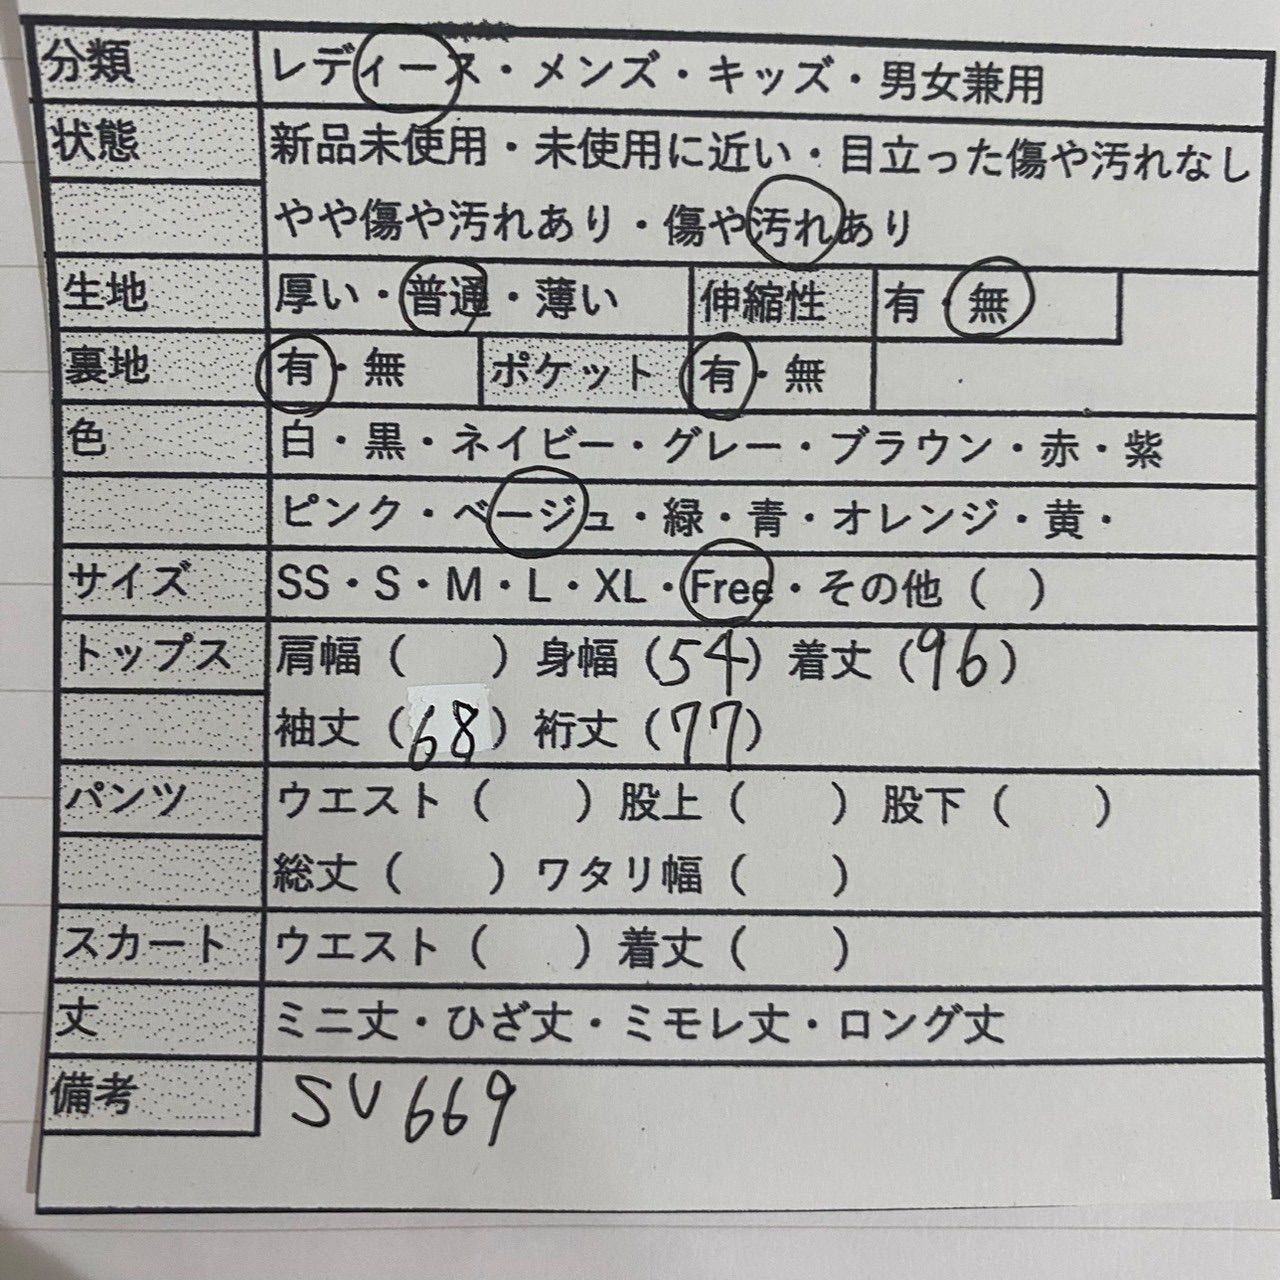 分類 レディース・メンズ・キッズ・男女兼用
状態 新品未使用・未使用に近い・目立った傷や汚れなし
やや傷や汚れあり・傷や汚れあり
生地 厚い・普通・薄い 伸縮性 有・無
裏地 有・無 ポケット 有・無
色 白・黒・ネイビー・グレー・ブラウン・赤・紫
ピンク・ベージュ・緑・青・オレンジ・黄・
サイズ SS・S・M・L・XL・Free・その他（ ）
トップス 肩幅（ ）身幅（54）着丈（96）
袖丈（68）裄丈（77）
パンツ ウエスト（ ）股上（ ）股下（ ）
総丈（ ）ワタリ幅（ ）
スカート ウエスト（ ）着丈（ ）
丈 ミニ丈・ひざ丈・ミモレ丈・ロング丈
備考 SV669